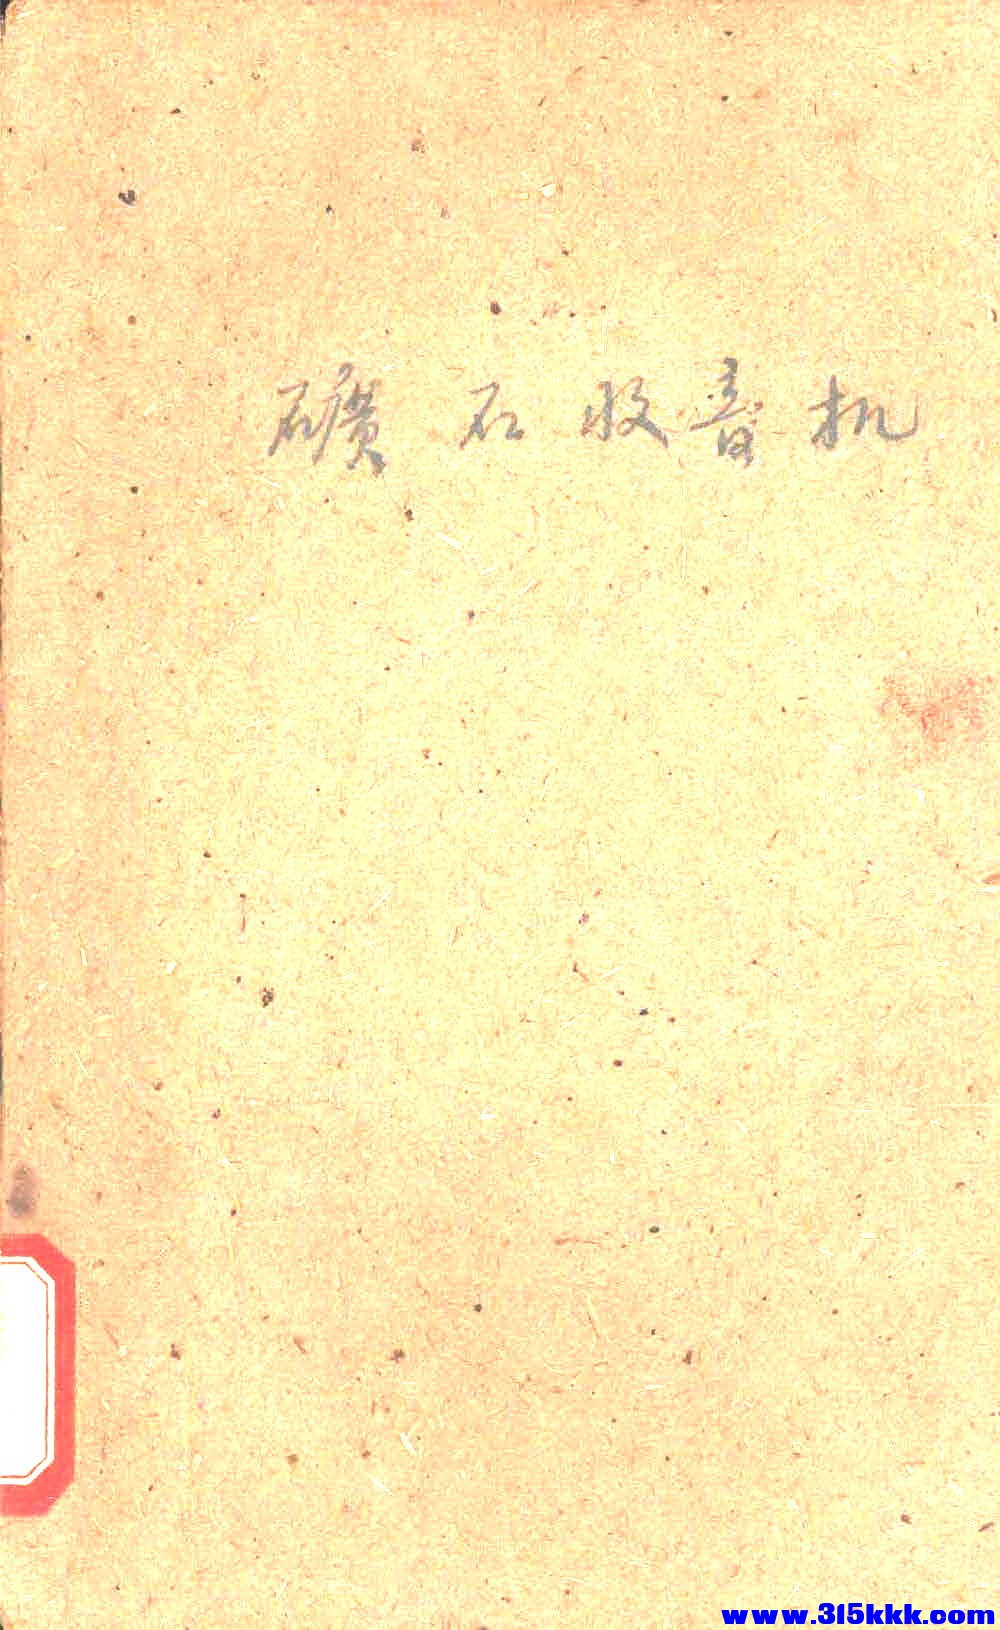 礦石收音机
www.315kkk.com